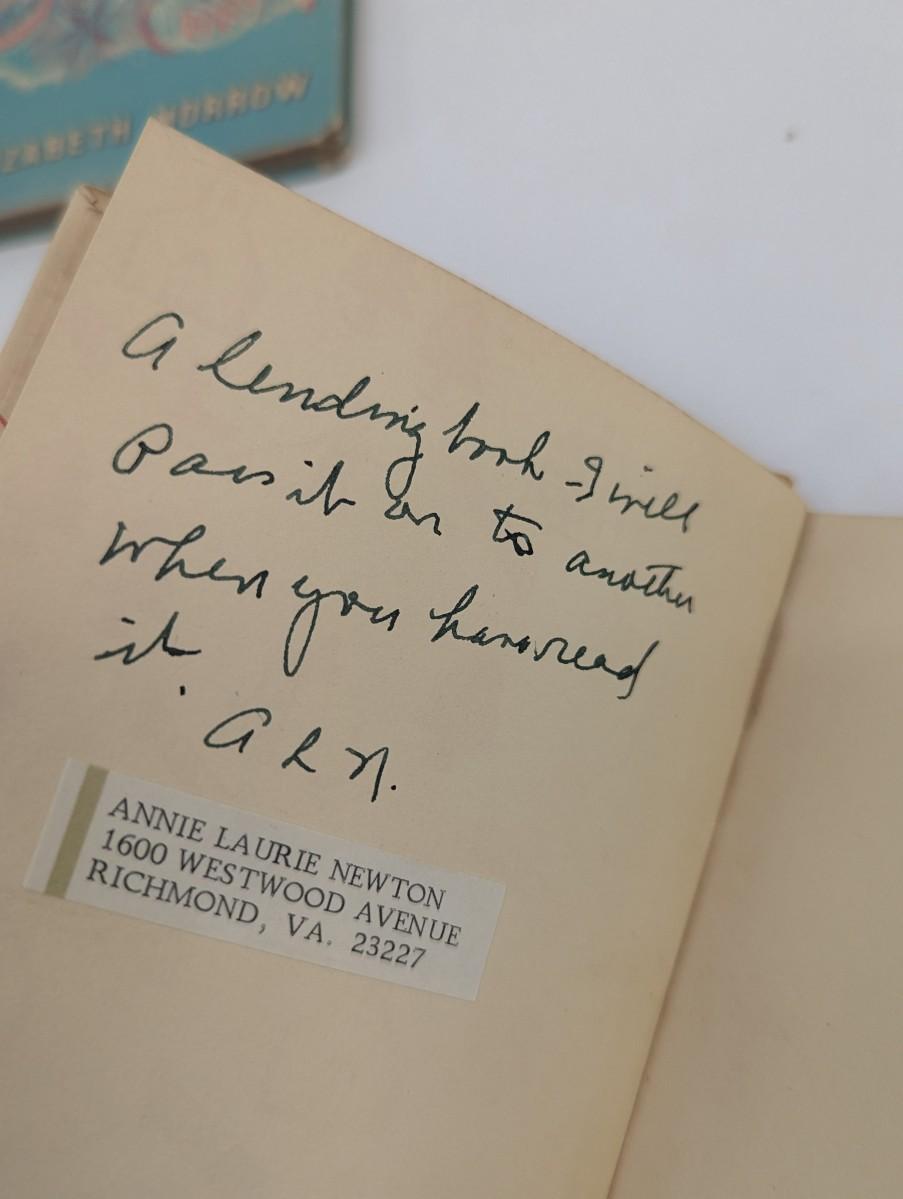 ZABETH MORROW
A lending book - I will
Pass it on to another
when you have read
it.
A L N.
ANNIE LAURIE NEWTON
1600 WESTWOOD AVENUE
RICHMOND, VA. 23227